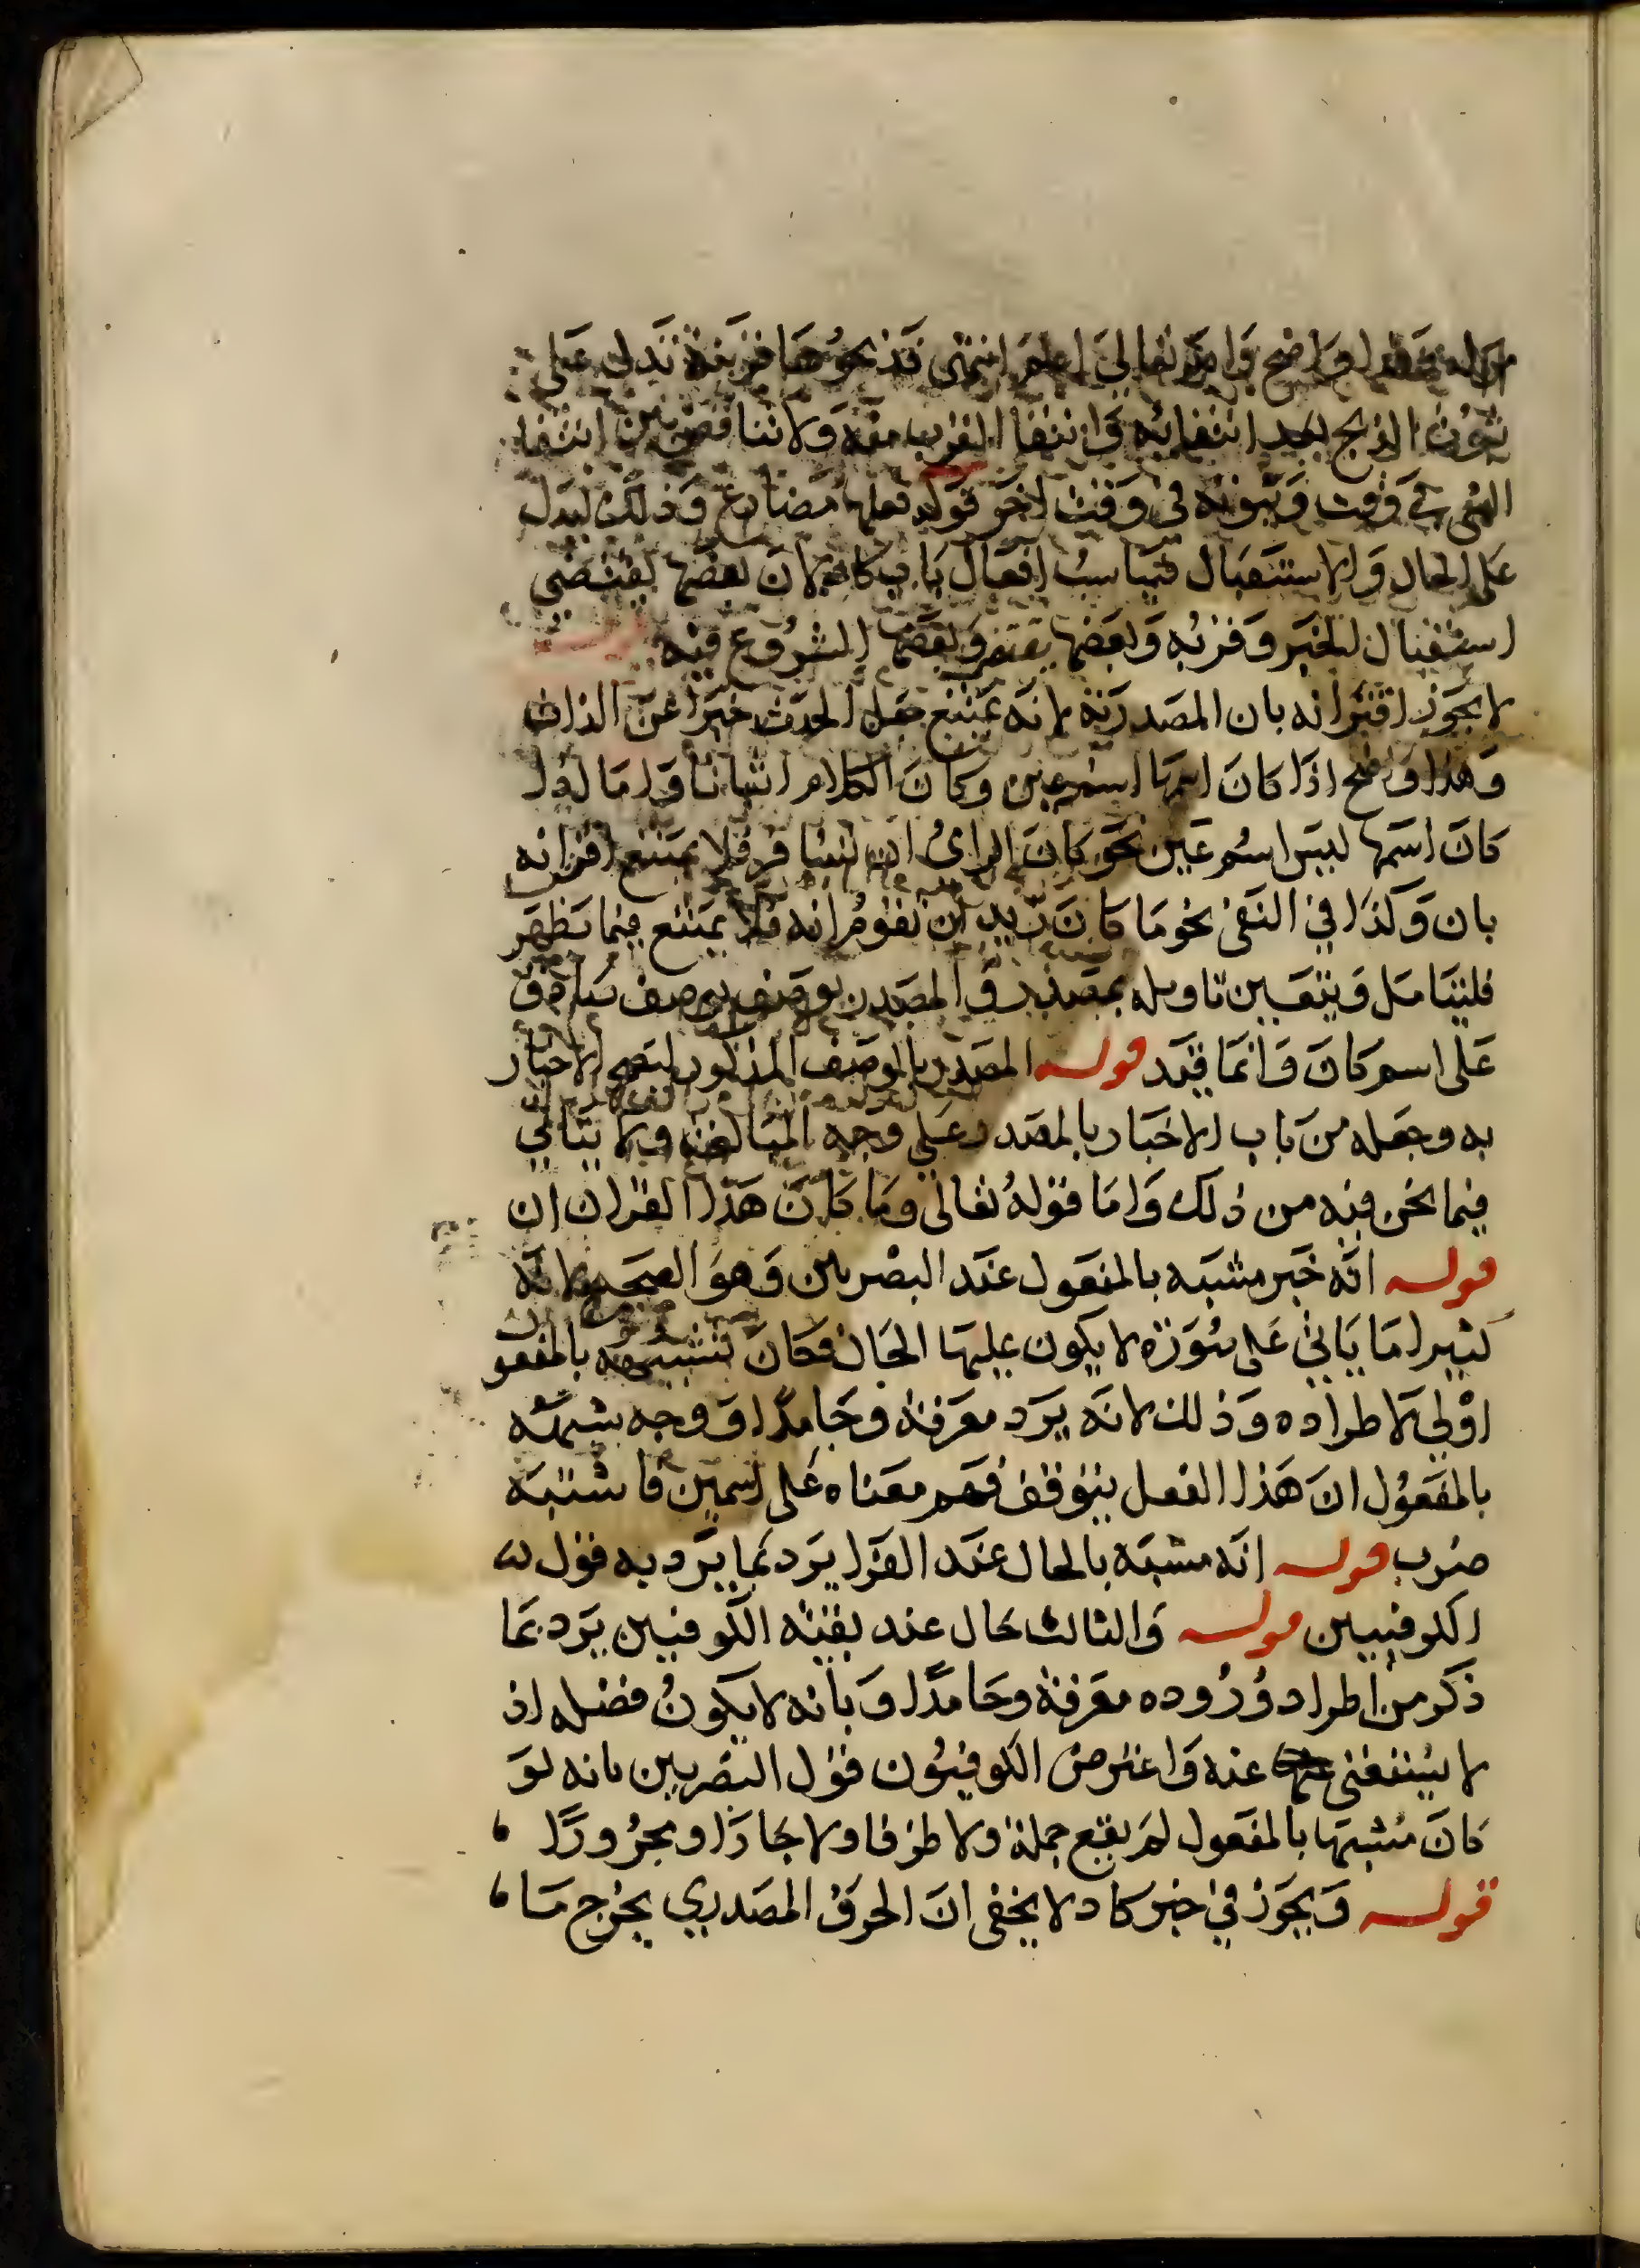 واضح والله تعالى اعلم انتهى فذبحوها قرينة تدل على
ثبوت الذبح بعد انتفائه وانتفا القرب منه ولا تناقض بين انتفا
الشي في وقت وثبوته في وقت اخر قوله فعلها مضارع وذلك ليدل
على الحال والاستقبال فيناسب افعال باب كاد لان بعضها يقتضي
استقبال الخبر وقربه وبعضها وبعضها الشروع فيه قوله
لا يجوز اقترانه بان المصدرية لانه يمتنع جعل الحدث خبرا عن الذات
وهذا واضح اذا كان اسمها اسم عين وكان الكلام اثباتا واما لو
كان اسمها ليس اسم عين نحو كان الراي ان نسافر فلا يمتنع اقترانه
بان وكذا في النفي نحو ما كان زيد ان يقوم انه فلا يمتنع فيما تظهر
فليتامل ويتعين تاويله بمصدر والمصدر بوصف بوصف صادق
على اسم كان وانما قيد قوله المصدر بالوصف المذكور ليصح الاخبار
به وجعله من باب الاخبار بالمصدر على وجه المبالغة ولا يتاتى
فيما نحن فيه من ذلك واما قوله تعالى وما كان هذا القران ان
قوله انه خبر مشبه بالمفعول عند البصريين وهو الصحيح لانه
كثيرا ما ياتي على صورة لا يكون عليها الحال فكان تشبيهه بالمفعو
اولى لاطراده وذلك لانه يرد معرفة وجامدا ووجه شبهه
بالمفعول ان هذا الفعل يتوقف فهم معناه على اسمين فاشبه
ضرب قوله انه مشبه بالحال عند الفرا يرد بما يرد به قول
الكوفيين قوله والثالث حال عند بقية الكوفيين يرد بما
ذكر من اطراد وروده معرفة وجامدا وبانه لا يكون فضله اذ
لا يستغنى عنه واعترض الكوفيون قول البصريين بانه لو
كان مشبها بالمفعول لم يقع جملة ولا ظرفا ولا جارا ومجرورا
قوله ويجوز في خبر كاد لا يخفى ان الحرف المصدري يخرج ما